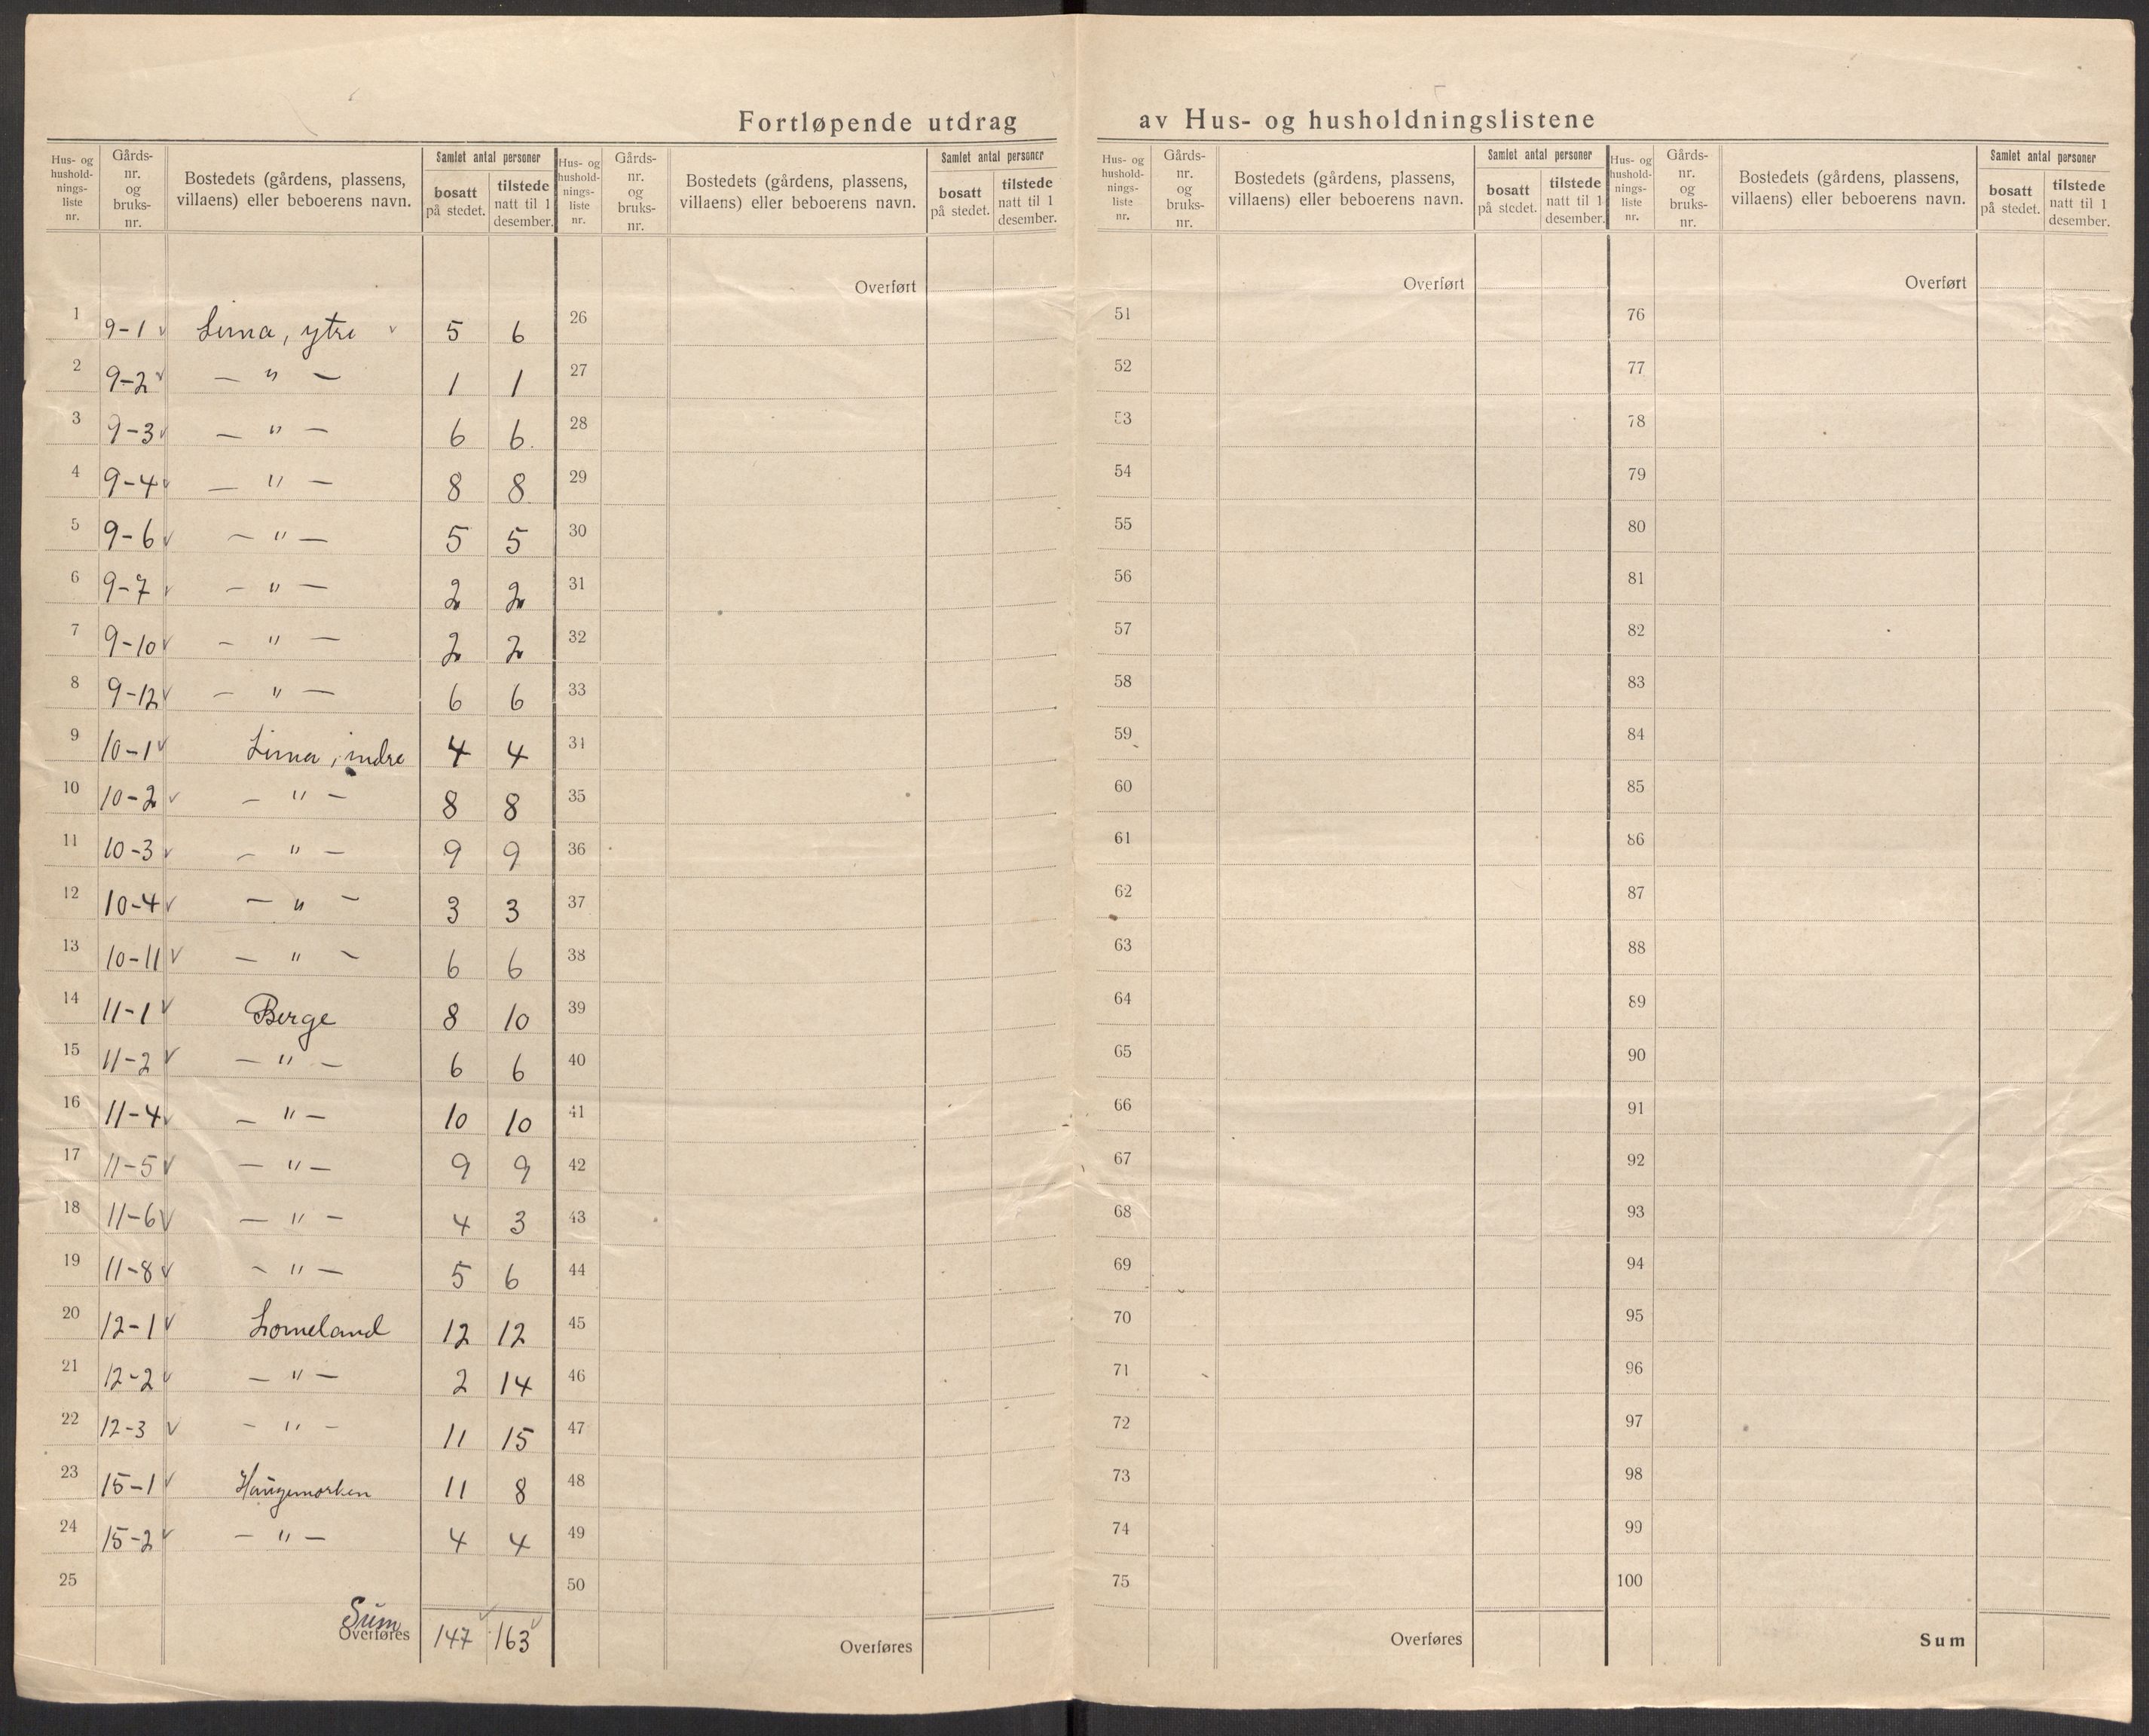 Fortløpende utdrag av Hus- og husholdningslistene
Hus- og hushold-nings-liste nr. Gårds-nr. og bruks-nr. Bostedets (gårdens, plassens, villaens) eller beboerens navn. Samlet antal personer bosatt på stedet. tilstede natt til 1 desember.
Hus- og hushold-nings-liste nr. Gårds-nr. og bruks-nr. Bostedets (gårdens, plassens, villaens) eller beboerens navn. Samlet antal personer bosatt på stedet. tilstede natt til 1 desember.
Hus- og hushold-nings-liste nr. Gårds-nr. og bruks-nr. Bostedets (gårdens, plassens, villaens) eller beboerens navn. Samlet antal personer bosatt på stedet. tilstede natt til 1 desember.
Hus- og hushold-nings-liste nr. Gårds-nr. og bruks-nr. Bostedets (gårdens, plassens, villaens) eller beboerens navn. Samlet antal personer bosatt på stedet. tilstede natt til 1 desember.
Overført Overført Overført
1 9-1 v Lima, ytre v 5 6 26 51 76
2 9-2 v — " — 1 1 27 52 77
3 9-3 v — " — 6 6. 28 53 78
4 9-4 v — " — 8 8. 29 54 79
5 9-6 v — " — 5 5 30 55 80
6 9-7 v — " — 2 2 31 56 81
7 9-10 v — " — 2 2 32 57 82
8 9-12 v — " — 6 6 33 58 83
9 10-1 v Lima, indre 4 4 34 59 84
10 10-2 v — " — 8 8 35 60 85
11 10-3 v — " — 9 9 36 61 86
12 10-4 v — " — 3 3 37 62 87
13 10-11 v — " — 6 6 38 63 88
14 11-1 v Berge 8 10 39 64 89
15 11-2 v — " — 6 6 40 65 90
16 11-4 v — " — 10 10 41 66 91
17 11-5 v — " — 9 9 42 67 92
18 11-6 v — " — 4 3 43 68 93
19 11-8 v — " — 5 6 44 69 94
20 12-1 v Lomeland 12 12 45 70 95
21 12-2 v — " — 2 14 46 71 96
22 12-3 v — " — 11 15 47 72 97
23 15-1 v Haugemorken 11 8 48 73 98
24 15-2 v — " — 4 4 49 74 99
25 50 75 100
Sum
Overføres 147 v 163 v Overføres Overføres Sum